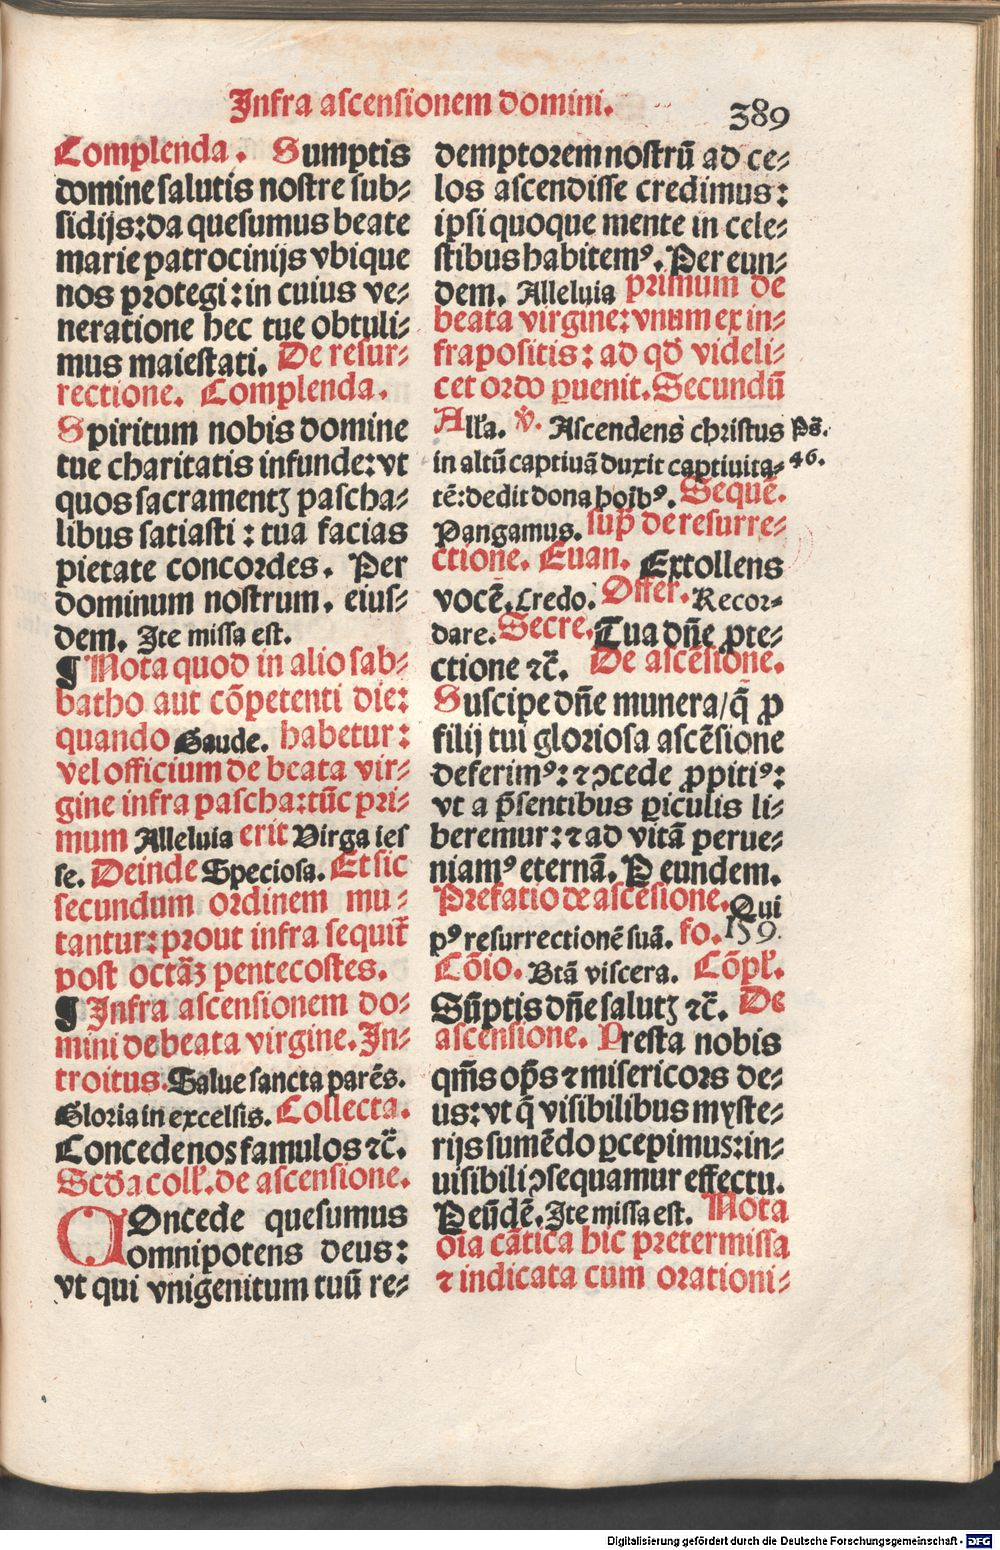 Infra ascensionem domini.
389
Complenda. Sumptis
domine salutis nostre sub⸗
sidijs: da quesumus beate
marie patrocinijs vbique
nos protegi: in cuius ve⸗
neratione hec tue obtuli⸗
mus maiestati. De resur⸗
rectione. Complenda.
Spiritum nobis domine
tue charitatis infunde: vt
quos sacramentꝫ pascha⸗
libus satiasti: tua facias
pietate concordes. Per
dominum nostrum. eius⸗
dem. Ite missa est.
¶ Nota quod in alio sab⸗
batho aut cõpetenti die:
quando Gaude. habetur:
vel officium de beata vir⸗
gine infra pascha: tũc pri⸗
mum Alleluia erit Virga ies
se. Deinde Speciosa. Et sic
secundum ordinem mu⸗
tantur: prout infra sequit̃
post octãꝫ pentecostes.
¶ Infra ascensionem do⸗
mini de beata virgine. In⸗
troitus. Salue sancta parẽs.
Gloria in excelsis. Collecta.
Concede nos famulos ⁊c̃.
Scďa coll̃. de ascensione.
COncede quesumus
omnipotens deus:
vt qui vnigenitum tuũ re⸗
demptorem nostrũ ad ce⸗
los ascendisse credimus:
ipsi quoque mente in cele⸗
stibus habitemꝰ. Per eun⸗
dem. Alleluia primum de
beata virgine: vnum ex in⸗
frapositis: ad qď videli⸗
cet ordo ꝑuenit. Secundũ
All̃a. ℣. Ascendens christus
Ps̃.
in altũ captiuã duxit captiuita⸗
46.
tẽ: dedit dona hoĩbꝰ. Sequẽ.
Pangamus. sup̃ de resurre⸗
ctione. Euan. Extollens
vocẽ. Credo. Offer. Recor⸗
dare. Secre. Tua dñe ꝓte⸗
ctione ⁊c̃. De ascẽsione.
Suscipe dñe munera/ q̃ ꝓ
filij tui gloriosa ascẽsione
deferimꝰ: ⁊ ꝯcede ꝓpitiꝰ:
vt a p̃sentibus ꝑiculis li⸗
beremur: ⁊ ad vitã perue⸗
niamꝰ eternã. Ꝑ eundem.
Prefatio de ascẽsione. Qui
pꝰ resurrectionẽ suã. fo. 159.
Cõio. Btã viscera. Cõpl̃.
Sũptis dñe salutꝫ ⁊c̃. De
ascensione. Presta nobis
qm̃s op̃s ⁊ misericors de⸗
us: vt q̃ visibilibus myste⸗
rijs sumẽdo ꝑcepimus: in⸗
uisibili ꝯsequamur effectu.
Ꝑ eũdẽ. Ite missa est. Nota
oĩa cãtica hic pretermissa
⁊ indicata cum orationi⸗
Digitalisierung gefördert durch die Deutsche Forschungsgemeinschaft - DFG